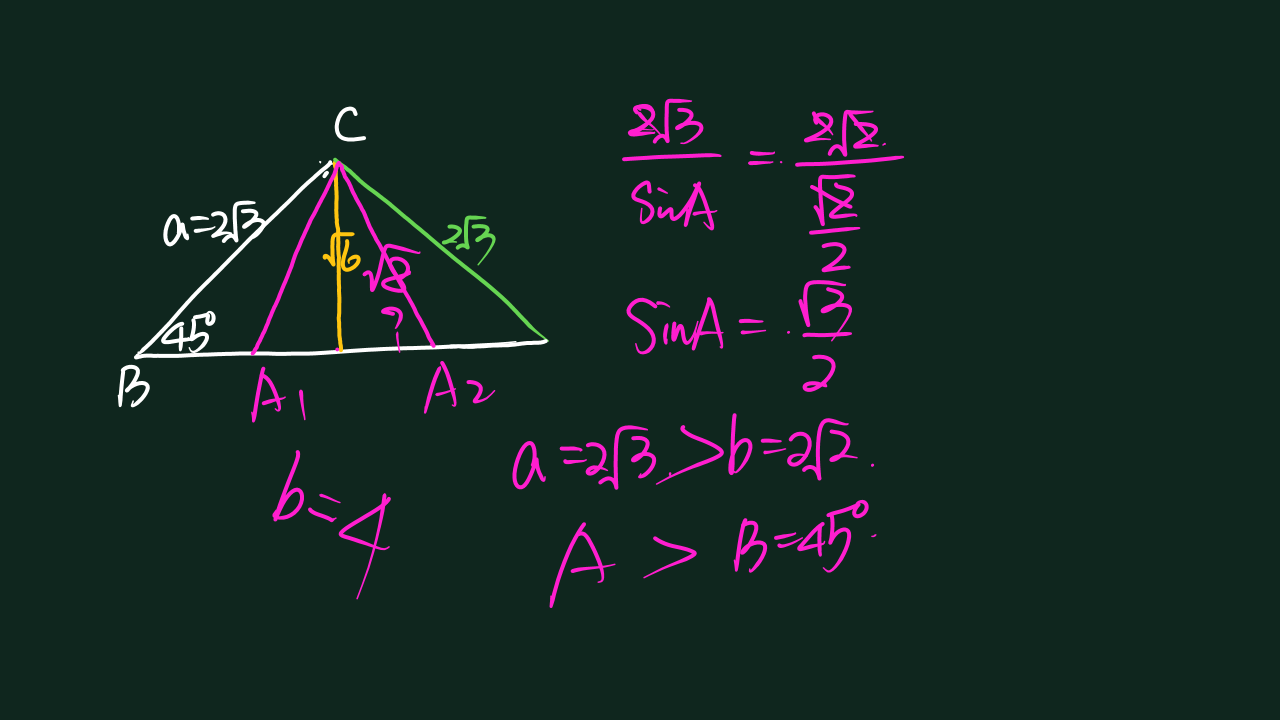 C
a=2√3
√6
√8
?
2√3
45°
B
A1
A2
b=4
2√3/SinA = 2√2/(√2/2)
SinA = √3/2
a=2√3 > b=2√2
A > B=45°